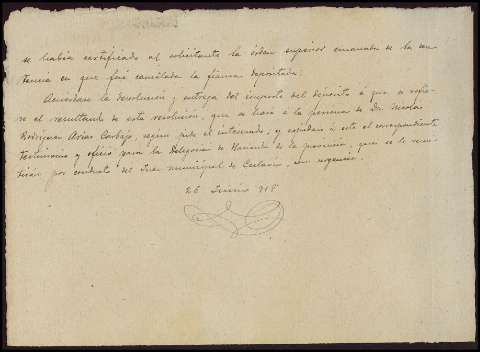 se había certificado al solicitante la orden superior emanada de la sen-
tencia en que fué cancelada la fianza depositada:
Acuérdase la devolución y entrega del importe del depósito á que se refie-
re el resultando de esta resolución, que se hará á la persona de Dn. Nicolás
Rodríguez Arias Carbajo, según pide el interesado, y expídase á este el correspondiente
testimonio y oficio para la Delegación de Hacienda de la provincia, que se le remi-
tirán por conducto del Juez municipal de, con urgencia.
26 Junio 918